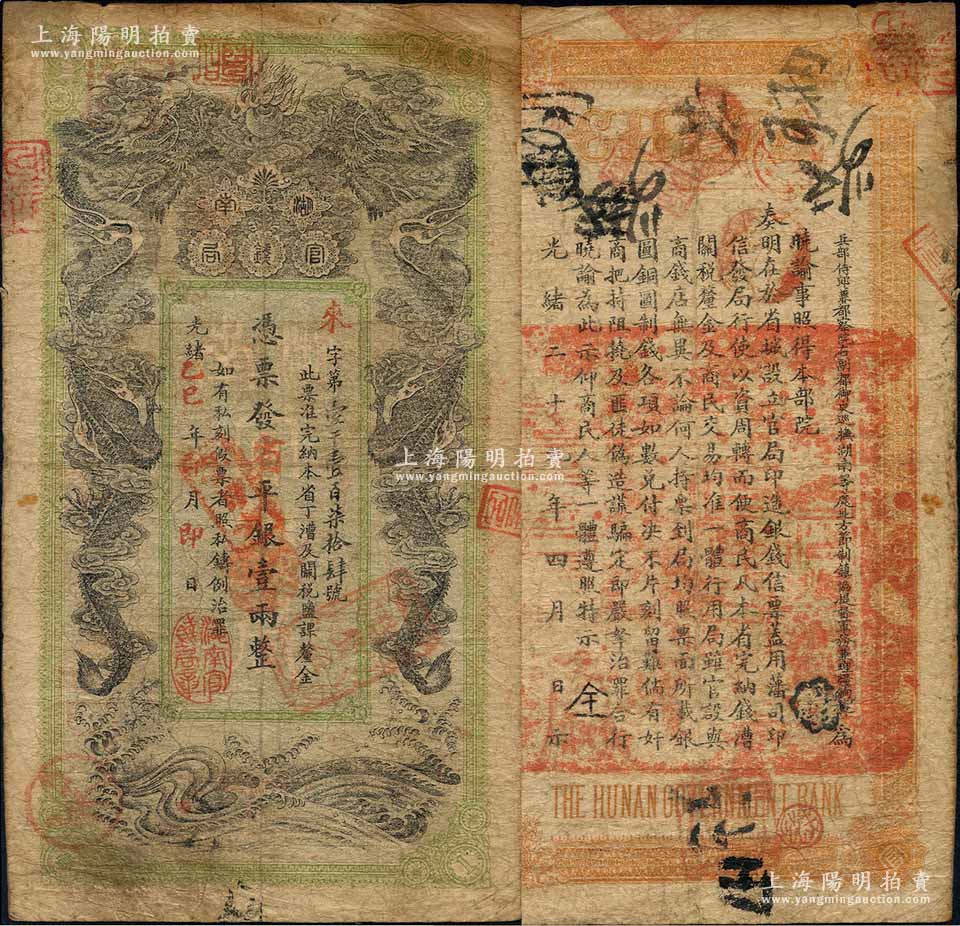 上海陽明拍賣
www.yangmingauction.com
湖南
官錢局
來字第壹千壹百柒拾肆號
此票准完納本省丁漕及關稅鹽課釐金
憑票發省平銀壹兩整
如有私刻假票者照私鑄例治罪
光緒乙巳年 月 日
即
上海陽明拍賣
www.yangmingauction.com
兵部侍郎兼都察院右副都御史巡撫湖南等處地方 為
曉諭事照得本部院
奏明在於省城設立官局印造銀錢信票蓋用藩司印
信發局行使以資周轉而便商民凡本省完納錢漕
關稅釐金及商民交易均准一體行用局雖官設與
商錢店無異不論何人持票到局均照票面所載銀
圓銅圓制錢各項如數兌付決不片刻留難倘有奸
商把持阻撓及匪徒偽造謊騙定即嚴拏治罪合行
曉諭為此示仰商民人等一體遵照特示
光緒二十九年四月 日示
全
THE HUNAN GOVERNMENT BANK
上海陽明拍賣
www.yangmingauction.com